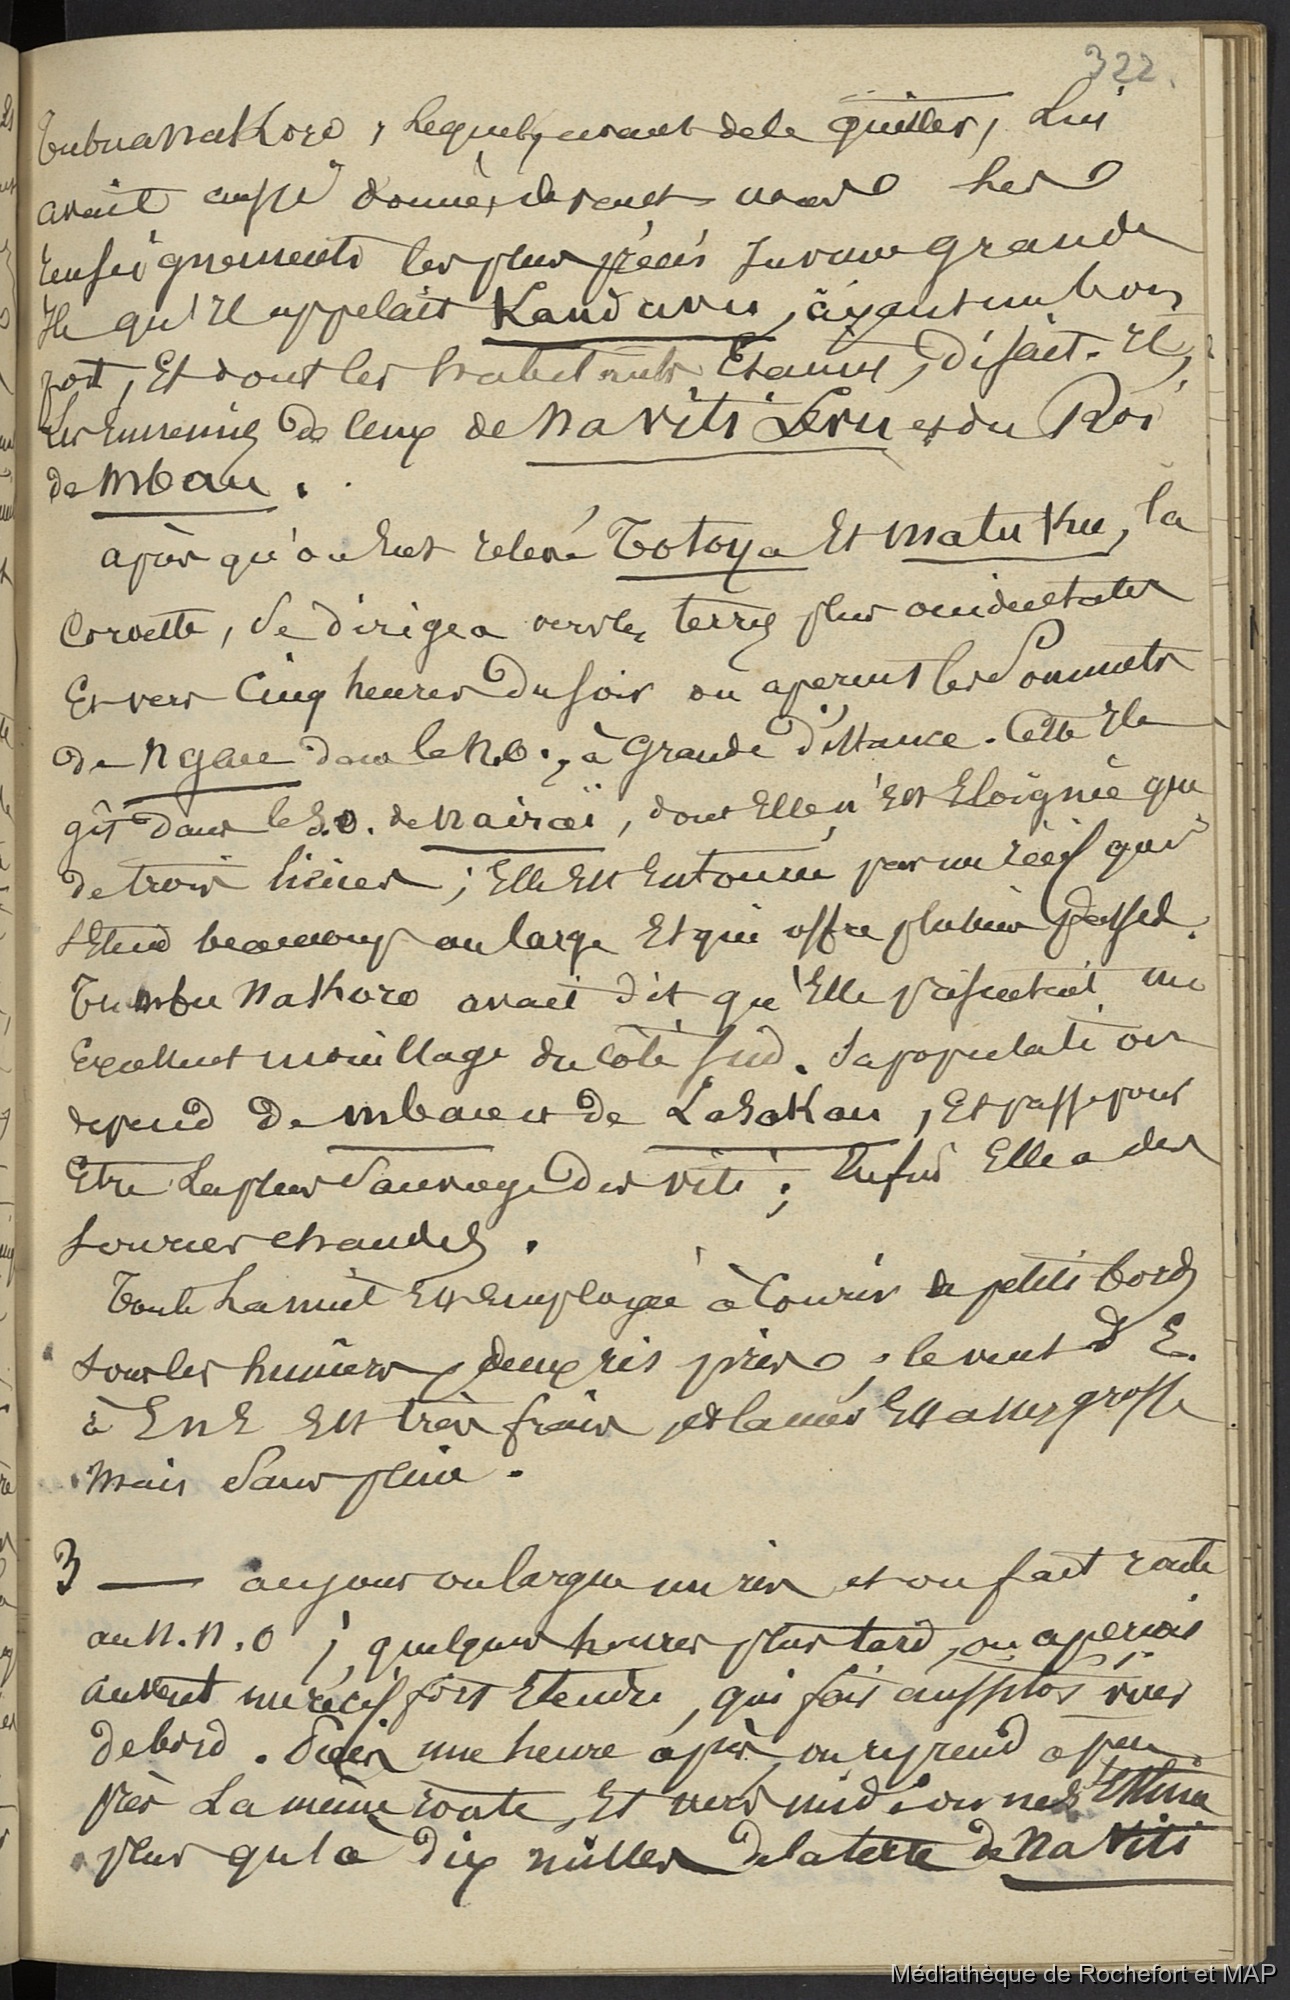 322.
Tubuanakoro, lequel, avant de le quitter, lui
avait aussi donné, devant nous les
renseignements les plus précis sur une grande
Ile qu'il appelait Kandavu, ayant un bon
port, Et dont les habitants Etaient, disait-Il,
les Ennemis de ceux de Na Viti Levu et du Roi
de Mbau.
après qu'on eut relevé Totoya Et Matuku, la
Corvette, se dirigea vers les terres plus occidentales
Et vers Cinq heures du soir on aperçut les Sommets
de Ngau dans le N.O., à Grande distance. Cette Ile
gît dans le S.O. de Nairaï, dont Elle n'Est Eloignée que
de trois lieues; Elle Est Entourée par un récif qui
s'Etend beaucoup au large Et qui offre plusieurs passes.
Tumbu Nakoro avait dit qu'Elle présentait un
Excellent mouillage du côté Sud. Sa population
dépend de Mbau et de Lasakau, Et passe pour
Etre la plus Sauvage des Viti; Enfin Elle a des
sources chaudes.
Toute la nuit Est Employée à Courir de petits bords
sous les huniers, deux ris pris, le vent d'E.
à ENE Est très frais, et la mer Est assez grosse
Mais Sans pluie.
3 — au jour on largue un ris et on fait route
au N.N.O; quelques heures plus tard, on aperçoit
au vent un récif fort Etendu, qui fait aussitôt virer
de bord. Puis une heure après, on reprend à peu
près la même route, Et vers midi on ne s'Estime
plus qu'à dix milles de la terre de Na Viti
Médiathèque de Rochefort et MAP